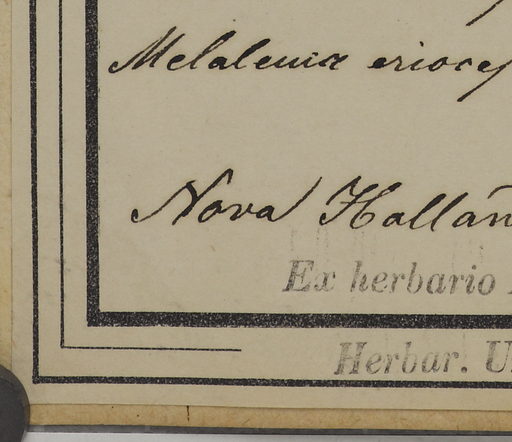 Melaleuca eriocep
Nova Hollan
Ex herbario
Herbar. U